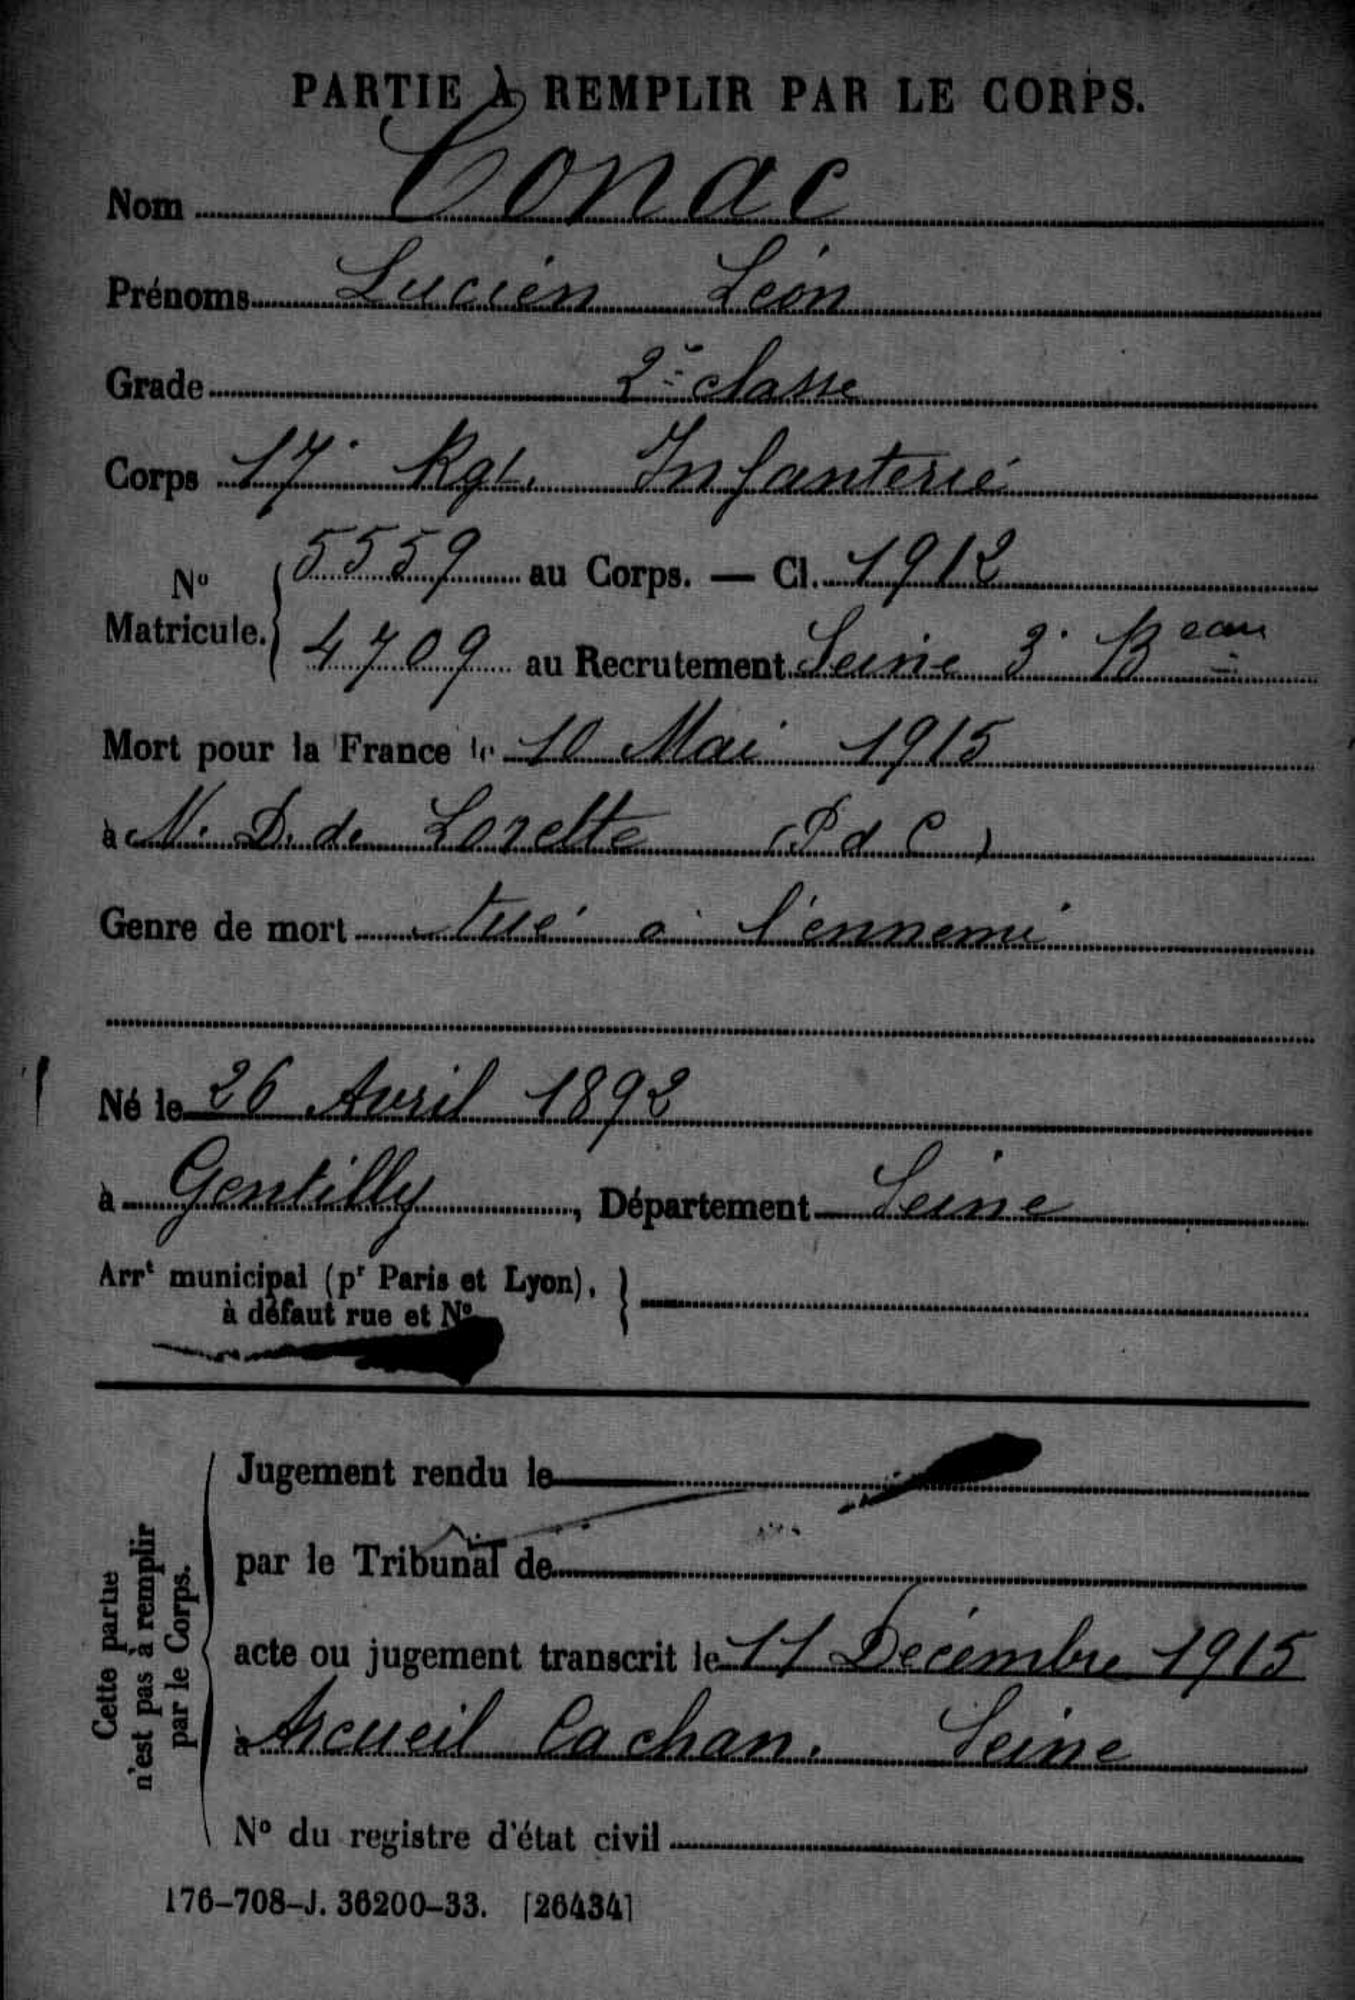 PARTIE À REMPLIR PAR LE CORPS.
Nom Conac
Prénoms Lucien Léon
Grade 2e classe
Corps 17e Rgt. Infanterie
No Matricule. { 5559 au Corps. — Cl. 1912
4709 au Recrutement Seine 3e Beau
Mort pour la France le 10 Mai 1915
à N. D. de Lorette (P d C)
Genre de mort tué à l'ennemi
Né le 26 Avril 1892
à Gentilly, Département Seine
Arrt municipal (pr Paris et Lyon), }
à défaut rue et No
Cette partie
n'est pas à remplir
par le Corps.
Jugement rendu le
par le Tribunal de
acte ou jugement transcrit le 11 Décembre 1915
à Arcueil Cachan. Seine
No du registre d'état civil
176-708-J. 36200-33. [26434]